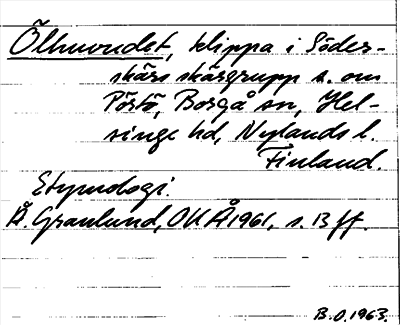 Ölhuvudet, klippa i Söder-
skärs skärgrupp s. om
Pörtö, Borgå sn, Hel-
singe hd, Nylands l.
Finland.
Etymologi.
Å. Granlund, OUÅ 1961, s. 13 ff.
B.O. 1963.